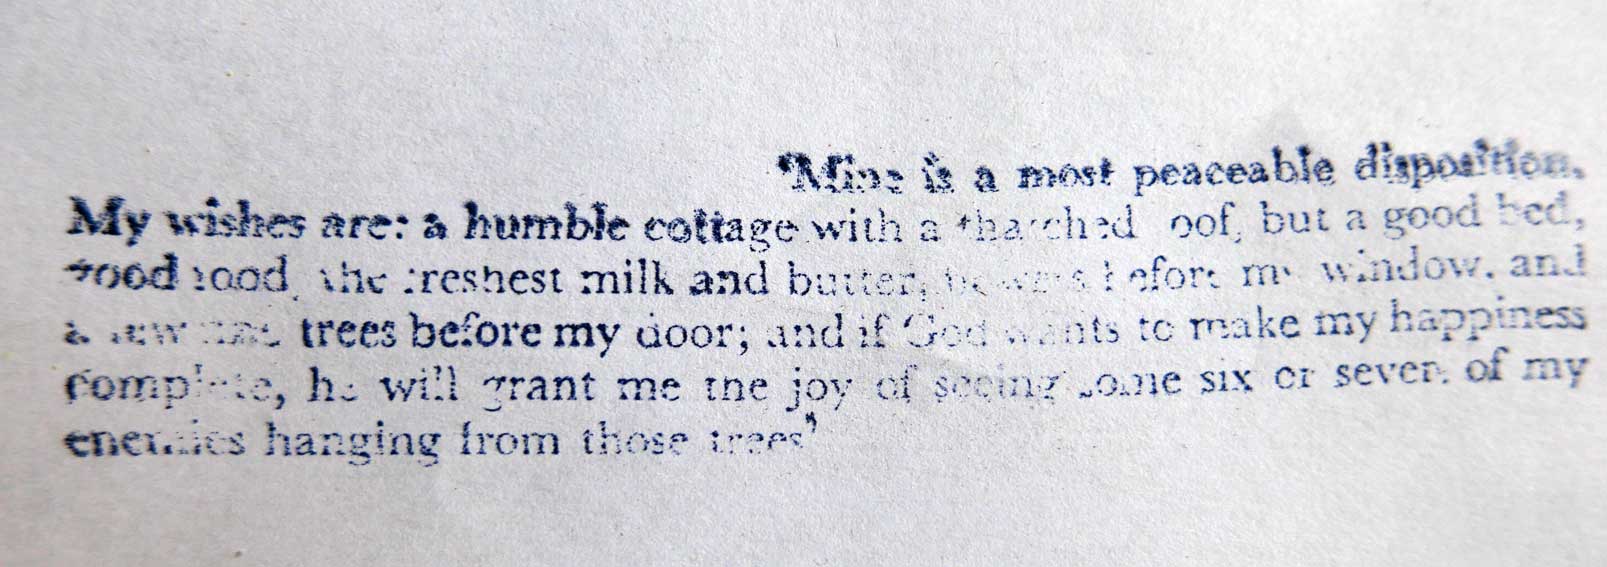 'Mine is a most peaceable disposition.
My wishes are: a humble cottage with a thatched roof, but a good bed,
good food, the freshest milk and butter, flowers before my window, and
a few fine trees before my door; and if God wants to make my happiness
complete, he will grant me the joy of seeing some six or seven of my
enemies hanging from those trees'